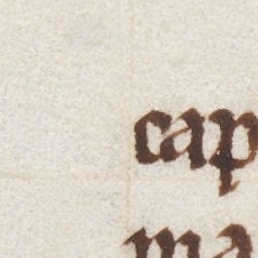 cap
ma